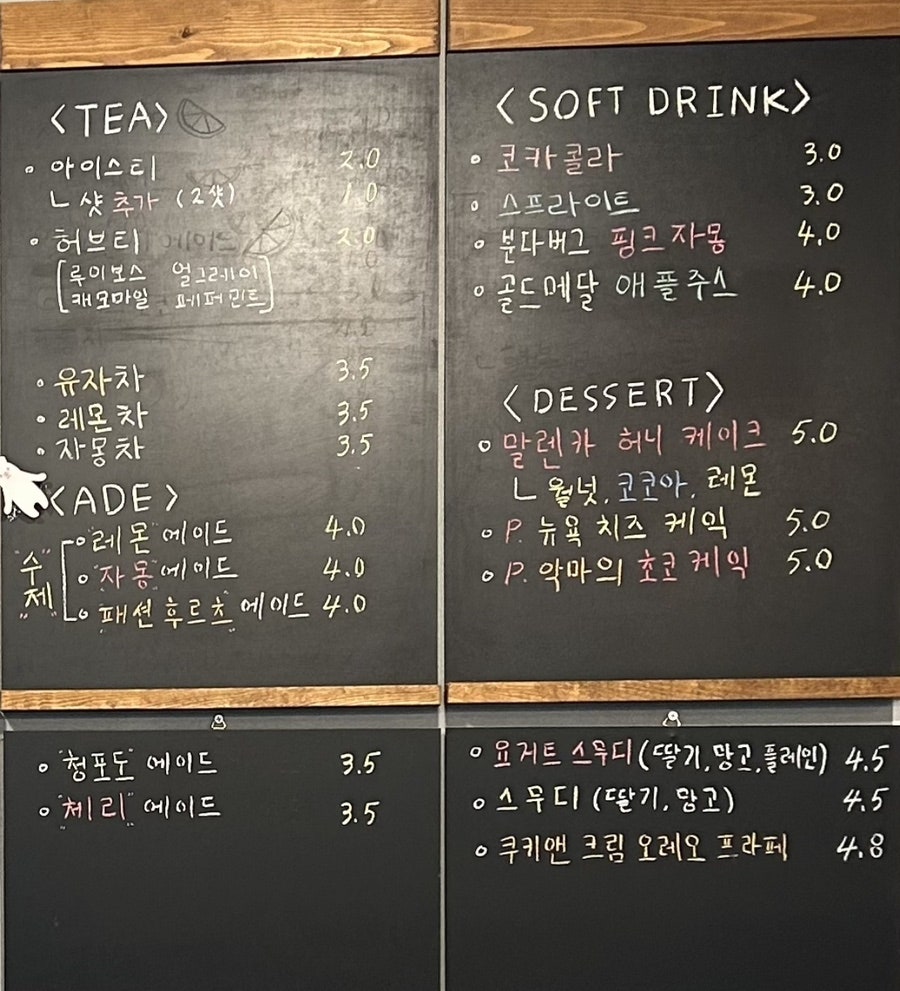 <TEA>
◦ 아이스티 2.0
ㄴ 샷 추가 (2샷) 1.0
◦ 허브티 2.0
[루이보스 얼그레이
캐모마일 페퍼민트]
◦ 유자차 3.5
◦ 레몬차 3.5
◦ 자몽차 3.5
<ADE>
"수제"
◦ "레몬"에이드 4.0
◦ "자몽"에이드 4.0
◦ "패션후르츠"에이드 4.0
◦ "청포도" 에이드 3.5
◦ "체리" 에이드 3.5
<SOFT DRINK>
◦ 코카콜라 3.0
◦ 스프라이트 3.0
◦ 분다버그 핑크자몽 4.0
◦ 골드메달 애플주스 4.0
<DESSERT>
◦ 말렌카 허니 케이크 5.0
ㄴ 월넛, 코코아, 레몬
◦ P. 뉴욕 치즈 케익 5.0
◦ P. 악마의 초코케익 5.0
◦ 요거트 스무디 (딸기, 망고, 플레인) 4.5
◦ 스무디 (딸기, 망고) 4.5
◦ 쿠키앤 크림 오레오 프라페 4.8